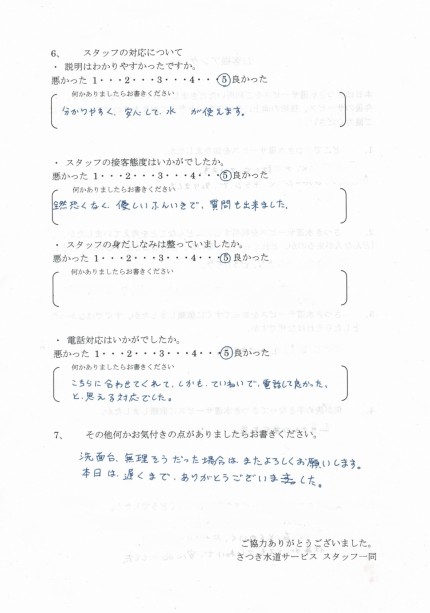 6、　スタッフの対応について
・ 説明はわかりやすかったですか。
悪かった 1・・・2・・・3・・・4・・・⑤良かった
何かありましたらお書きください
分かりやすく、安心して、水 が使えます。
・ スタッフの接客態度はいかがでしたか。
悪かった 1・・・2・・・3・・・4・・・⑤良かった
何かありましたらお書きください
然恐くなく、優しいふんいきで、質問も出来ました。
・ スタッフの身だしなみは整っていましたか。
悪かった 1・・・2・・・3・・・4・・・⑤良かった
何かありましたらお書きください
・ 電話対応はいかがでしたか。
悪かった 1・・・2・・・3・・・4・・・⑤良かった
何かありましたらお書きください
こちらに合わせてくれて、しかも、ていねいで、電話して良かった、
と、思える対応でした。
7、　その他何かお気付きの点がありましたらお書きください。
洗面台、無理そうだった場合は、またよろしくお願いします。
本日は、遅くまで、ありがとうございました。
ご協力ありがとうございました。
さつき水道サービス スタッフ一同